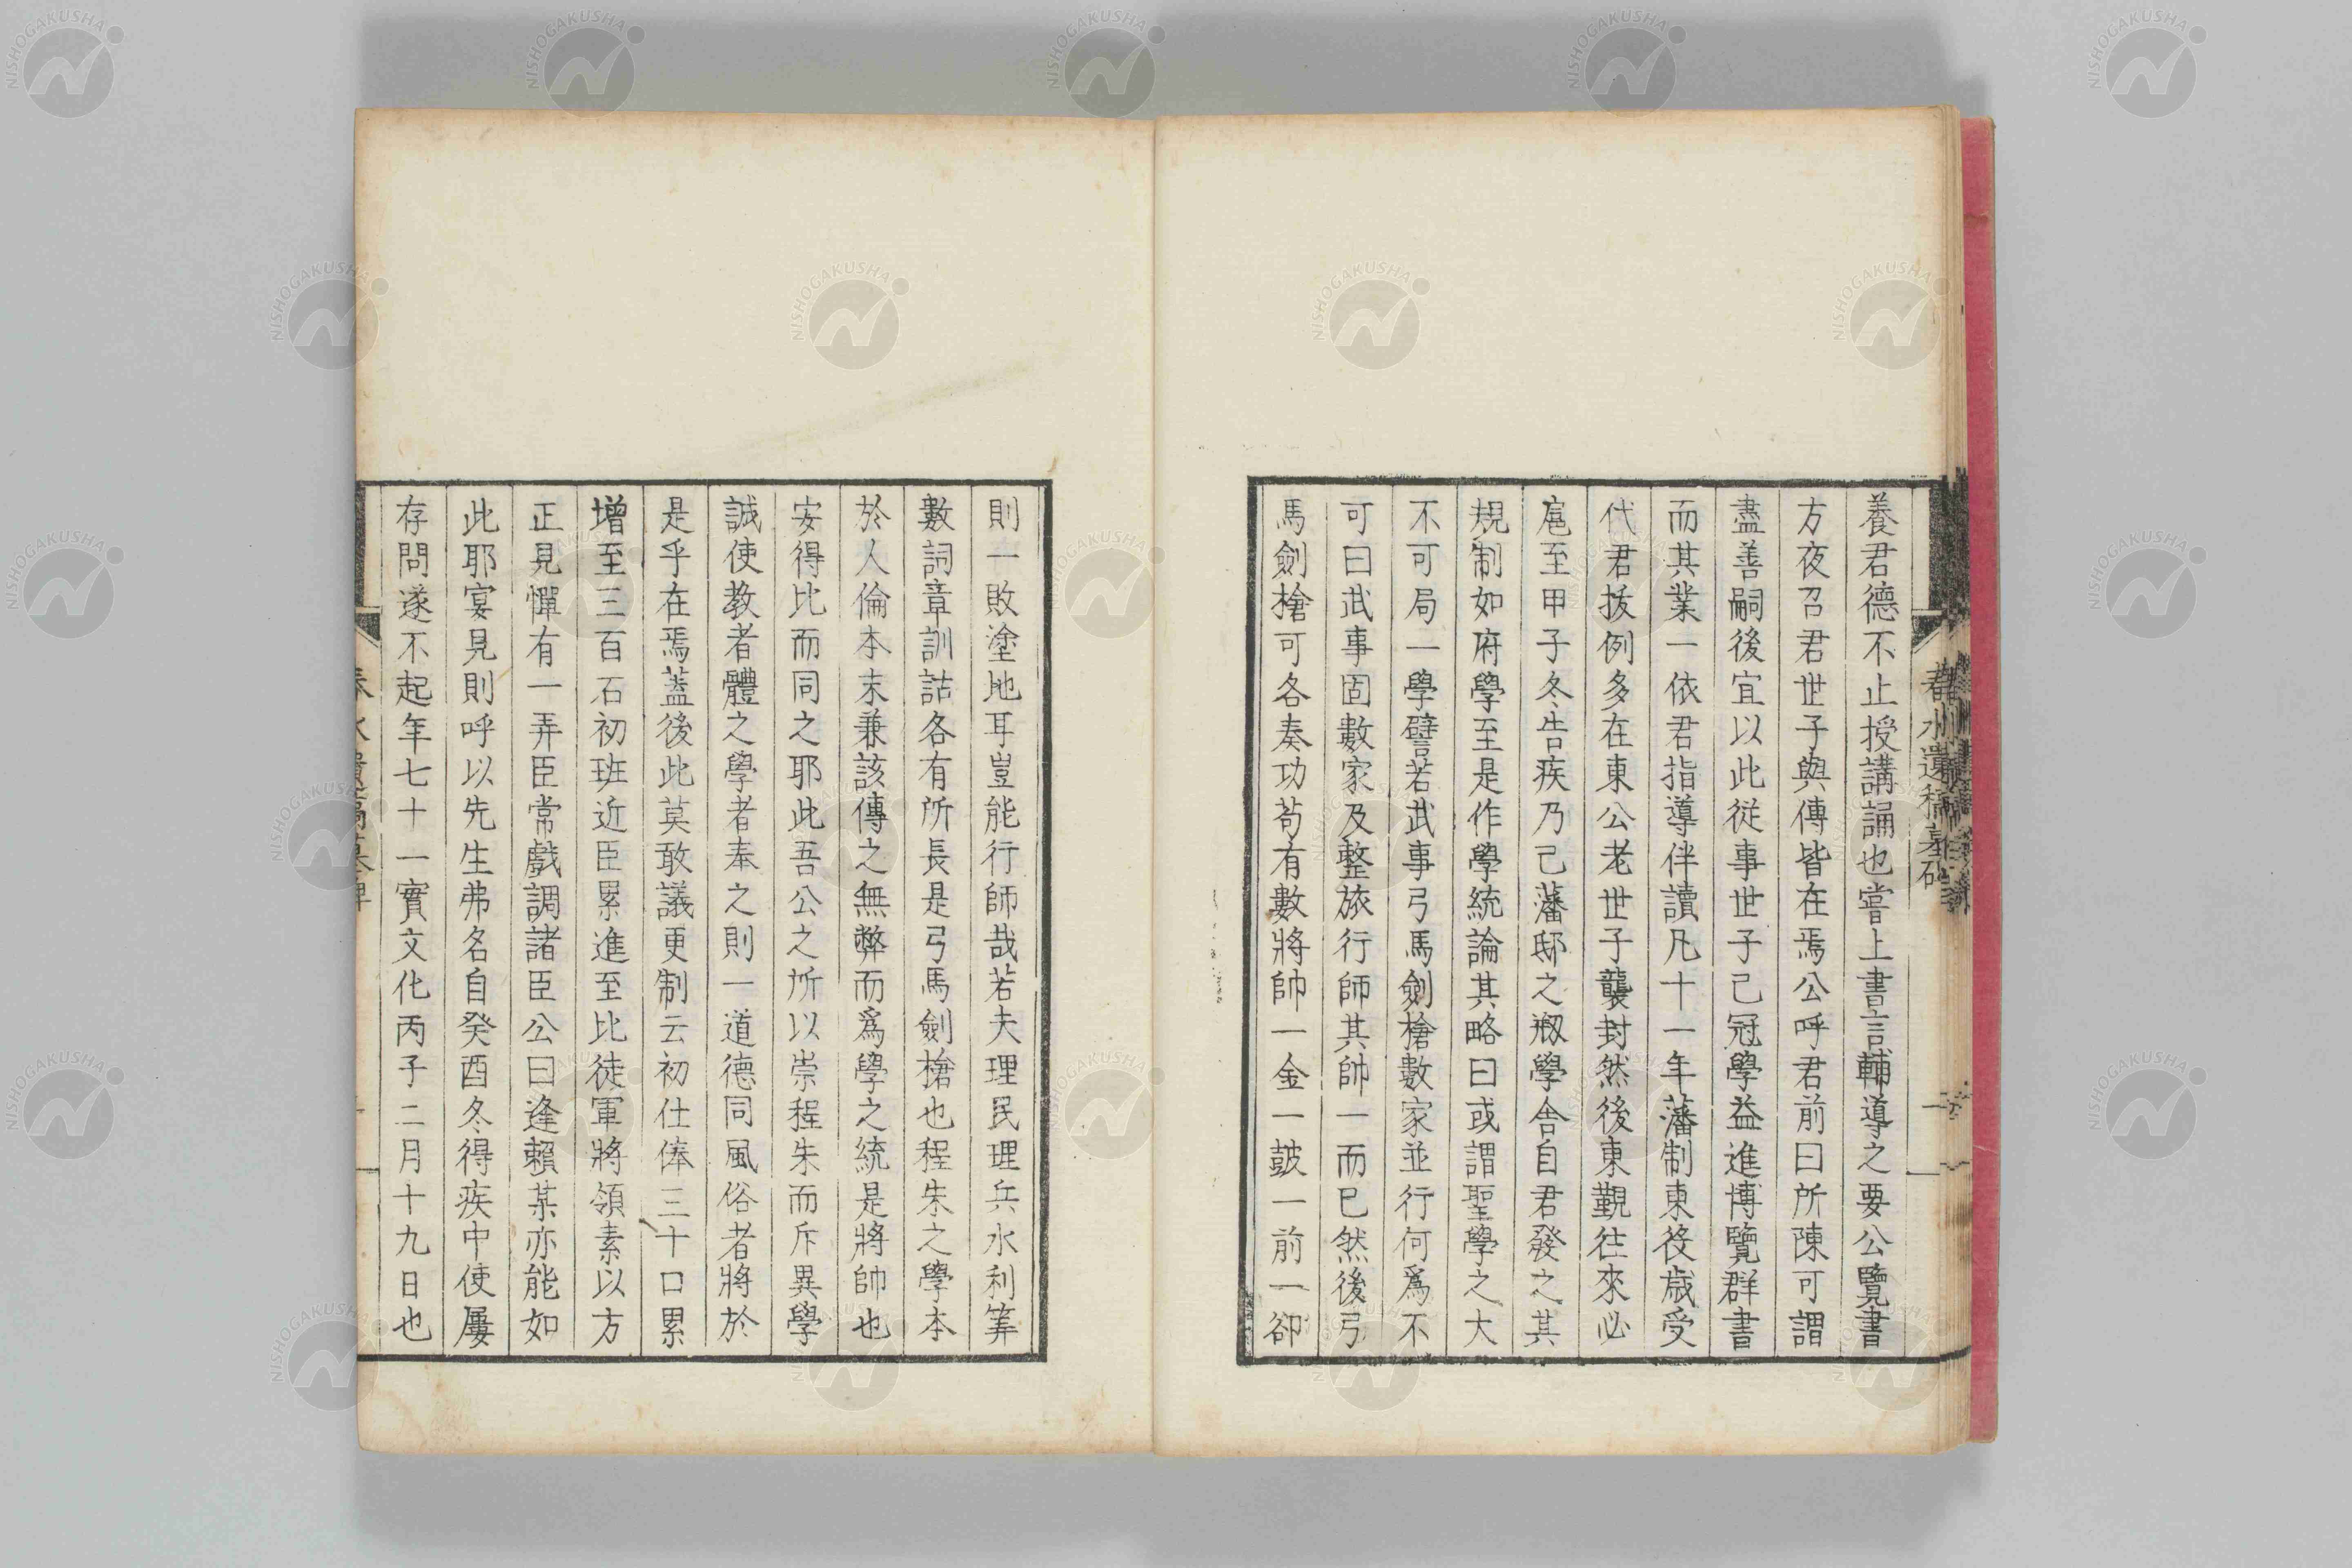 養君德不止授講誦也嘗上書言輔導之要公覽書
方夜召君世子與傳皆在焉公呼君前曰所陳可謂
盡善嗣後宜以此從事世子已冠學益進博覽群書
而其業一依君指導伴讀凡十一年藩制東役歲受
代君拔例多在東公老世子襲封然後東覲往來必
扈至甲子冬告疾乃已藩邸之剏學舍自君發之其
規制如府學至是作學統論其略曰或謂聖學之大
不可局一學譬若武事弓馬劍槍數家並行何爲不
可曰武事固數家及整旅行師其帥一而已然後弓
馬劍槍可各奏功苟有數將帥一金一鼓一前一卻
則一敗塗地耳豈能行師哉若夫理民理兵水利筭
數詞章訓詁各有所長是弓馬劍槍也程朱之學本
於人倫本末兼該傳之無弊而爲學之統是將帥也
安得比而同之耶此吾公之所以崇程朱而斥異學
誠使教者體之學者奉之則一道德同風俗者將於
是乎在焉蓋後此莫敢議更制云初仕俸三十口累
增至三百石初班近臣累進至比徒軍將領素以方
正見憚有一弄臣常戲調諸臣公曰逢賴某亦能如
此耶宴見則呼以先生弗名自癸酉冬得疾中使屢
存問遂不起年七十一實文化丙子二月十九日也
春水遺稿墓碑
NISHOGAKUSHA